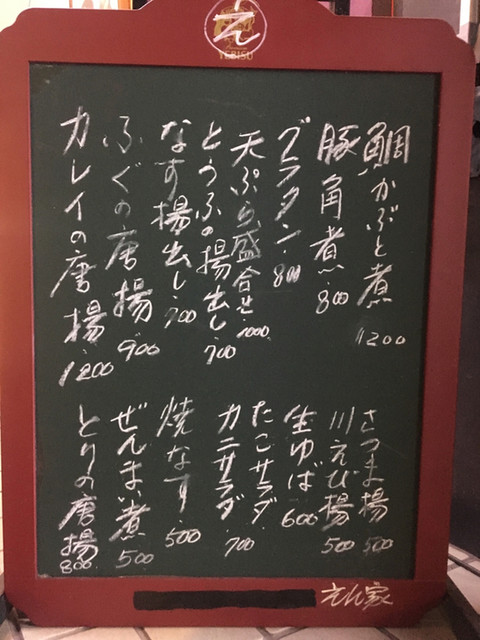 え
YEBISU
鯛かぶと煮 1200
豚角煮・800
グラタン・800
天ぷら盛合せ・1000
とうふの揚出し・700
なす揚出し・700
ふぐの唐揚・900
カレイの唐揚・1200
さつま揚 500
川えび揚 500
生ゆば 600
たこサラダ
カニサラダ・700
焼なす 500
ぜんまい煮 500
とりの唐揚 800
えん家